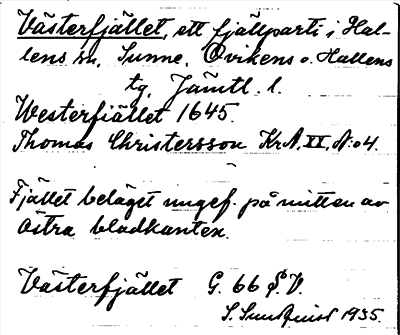 Västerfjället, ett fjällparti i Hal-
lens sn, Sunne, Ovikens o. Hallens
tg, Jämtl. l.
Westerfjället 1645.
Thomas Christersson Kr.A. XX, N:o 4.
Fjället beläget ungef. på mitten av
östra bladkanten.
Västerfjället G. 66 S.V.
S. Sundquist 1935.